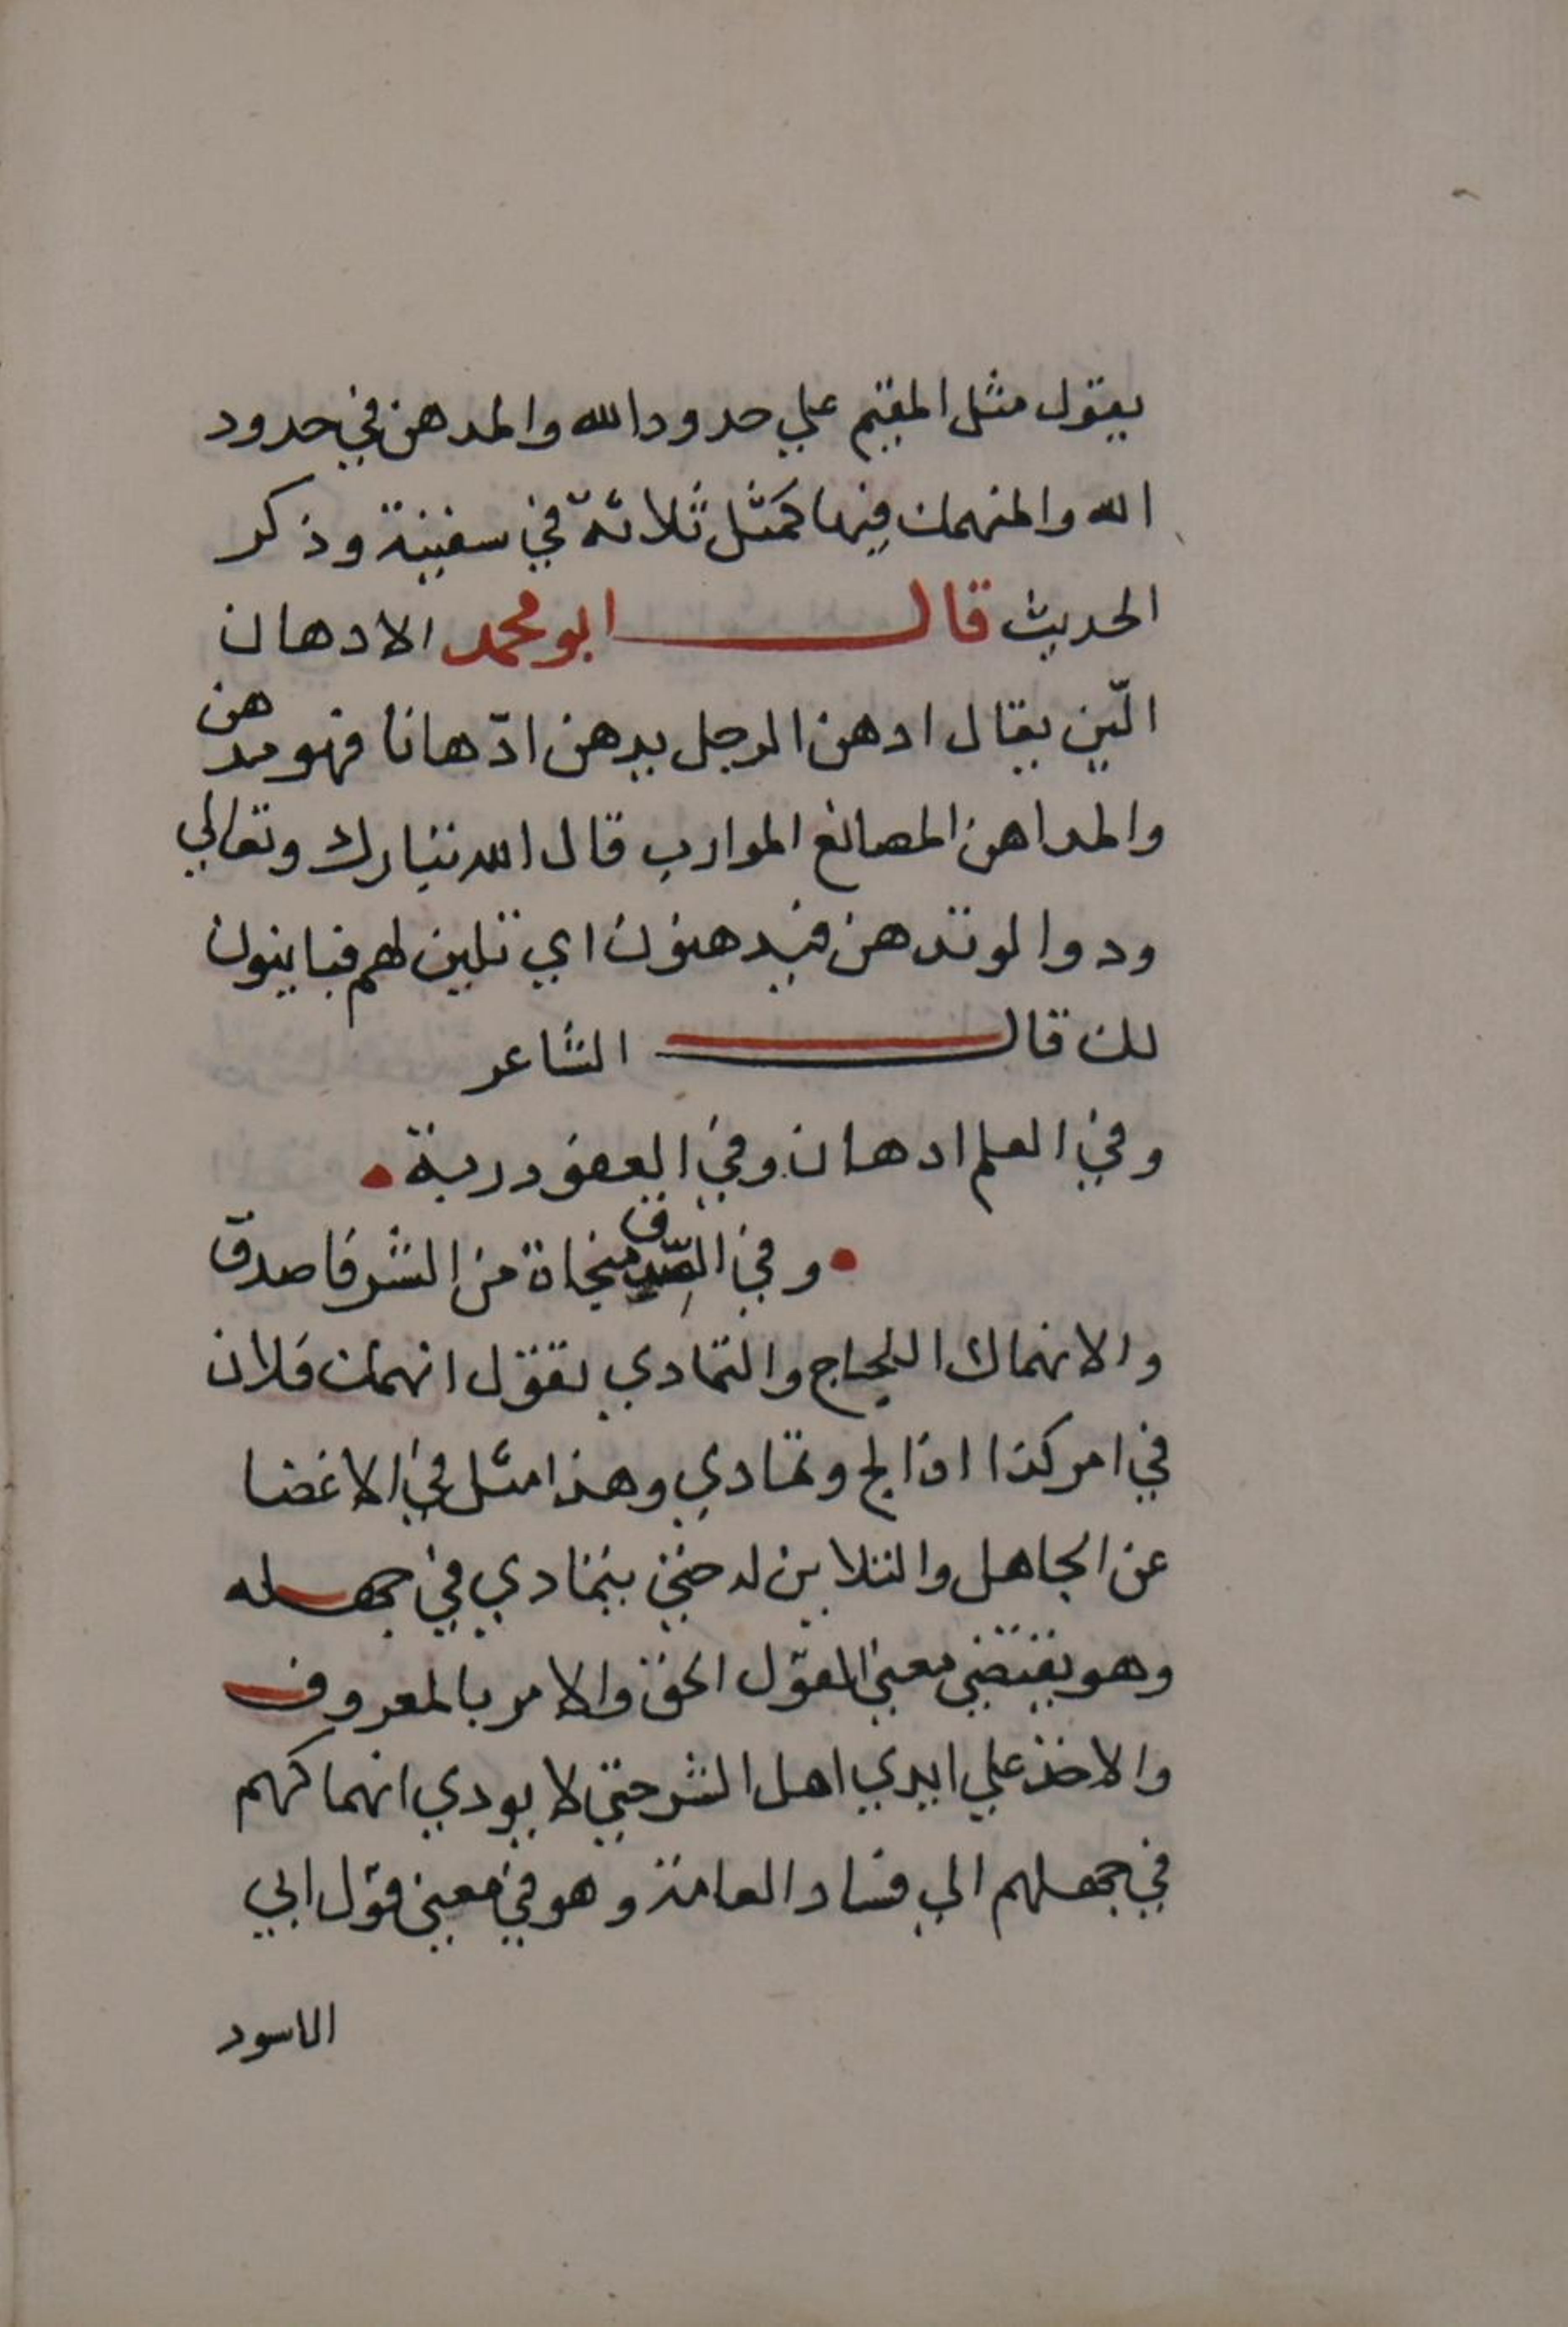 يقول مثل المقيم علي حدود الله والمدهن في حدود
الله والمنهمك فيها كمثل ثلاثة في سفينة وذكر
الحديث قال ابو محمد الادهان
الّين يقال ادهن الرجل يدهن ادّهانا فهو مدهن
والمداهن المصانع الموارب قال الله تبارك وتعالي
ودوا لو تدهن فيدهنون اي تلين لهم فيلينون
لك قال الشاعر
وفي العلم ادهان وفي العفو دربة
وفي الصّدق منجاة من الشر فاصدق
والانهماك اللجاج والتمادي تقول انهمك فلان
في امر كذا اذا لج وتمادي وهذا مثل في الاغضا
عن الجاهل والتلاين له حتي يتمادي في جهله
وهو يقتضي معني القول الحق والامر بالمعروف
والاخذ علي ايدي اهل الشر حتي لا يودي انهماكهم
في جهلهم الي فساد العامة وهو في معني قول ابي
الاسود